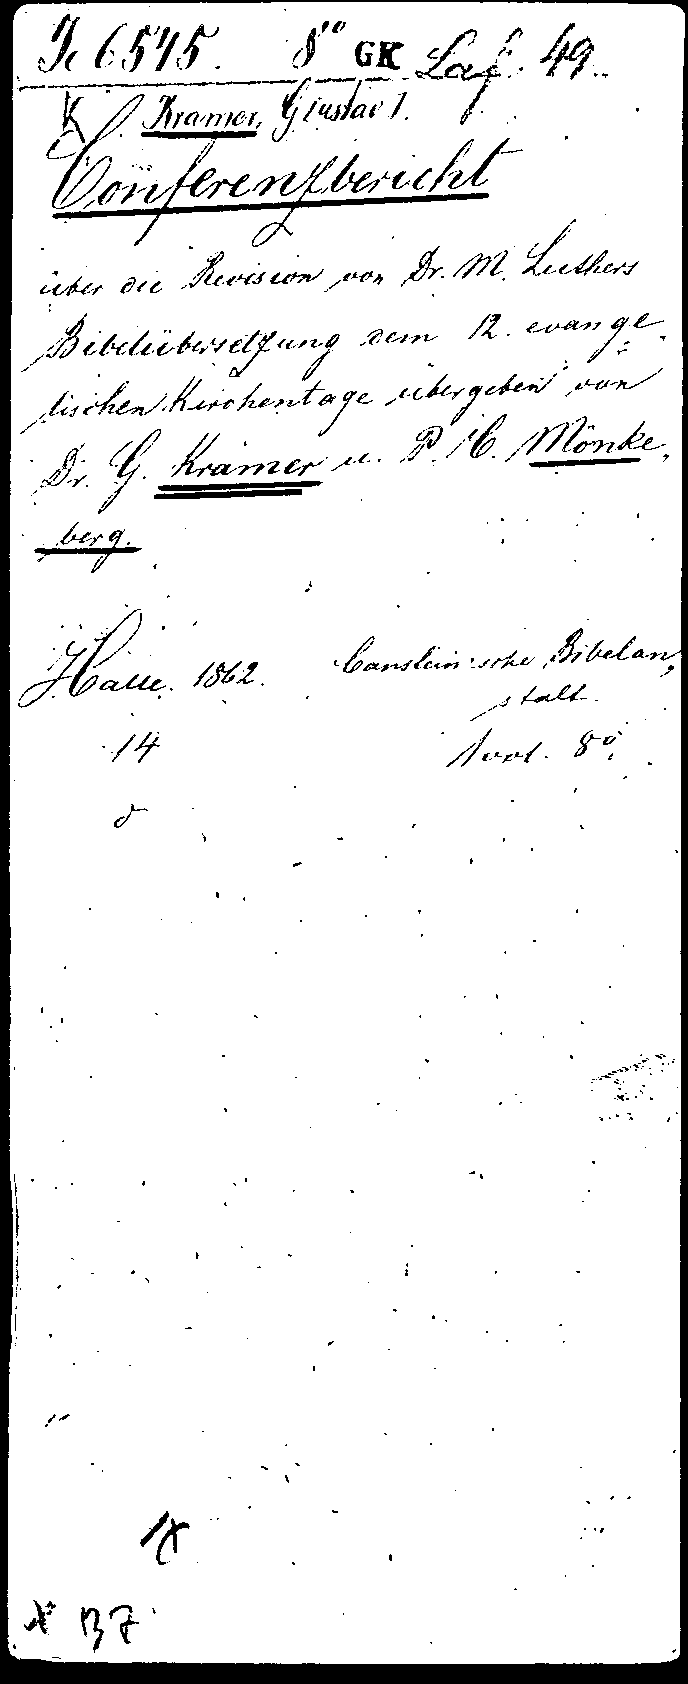 Ic 6545. 8° GK Laf. 49.
K Kramer, Gustav 1.
Conferenzbericht
über die Revision von Dr. M. Luthers
Bibelübersetzung dem 12. evange-
lischen Kirchentage übergeben von
Dr. G. Kramer u. P. C. Mönke-
berg.
Halle. 1862. Canstein'sche Bibelan-
stalt.
14 1 vol. 8°.